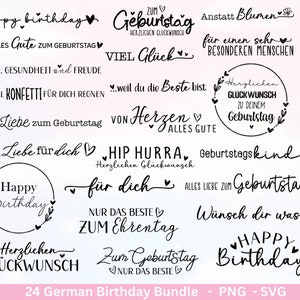 ppy birthday
ZUM
Geburtstag
HERZLICHEN GLÜCKWUNSCH
Anstatt Blumen
les Gute ZUM GEBURTSTAG
VIEL Glück
für einen sehr
BESONDEREN MENSCHEN
, GESUNDHEIT und FREUDE
...weil du die Beste bist
Herzlichen
GLÜCKWUNSCH
ZU DEINEM
Geburtstag
KONFETTI FÜR DICH REGNEN
Liebe zum Geburtstag
von Herzen
ALLES GUTE
Liebe für dich
HIP HURRA
Herzlichen Glückwunsch
Geburtstagskind
Happy
Birthday
für dich
ALLES LIEBE ZUM Geburtsta
NUR DAS BESTE
ZUM Ehrentag
Wünsch dir was
Herzlichen
ÜCKWUNSCH
Zum Geburtstag
NUR DAS BESTE
HAPPY
Birthday
24 German Birthday Bundle - PNG - SVG